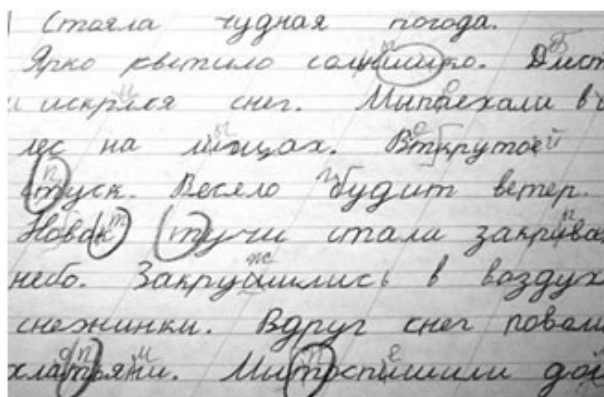 Стаяла чудная погода.
Ярко кветило солнишко. Длист
и искрился снег. Мыпаехали в
лес на лищах. Вткрутой
стуск. Весело будит ветер.
Новак тучи стали закрива
небо. Закруашлись в воздух
снежинки. Вдруг снег повали
хлатьяни. Мытоспишили до